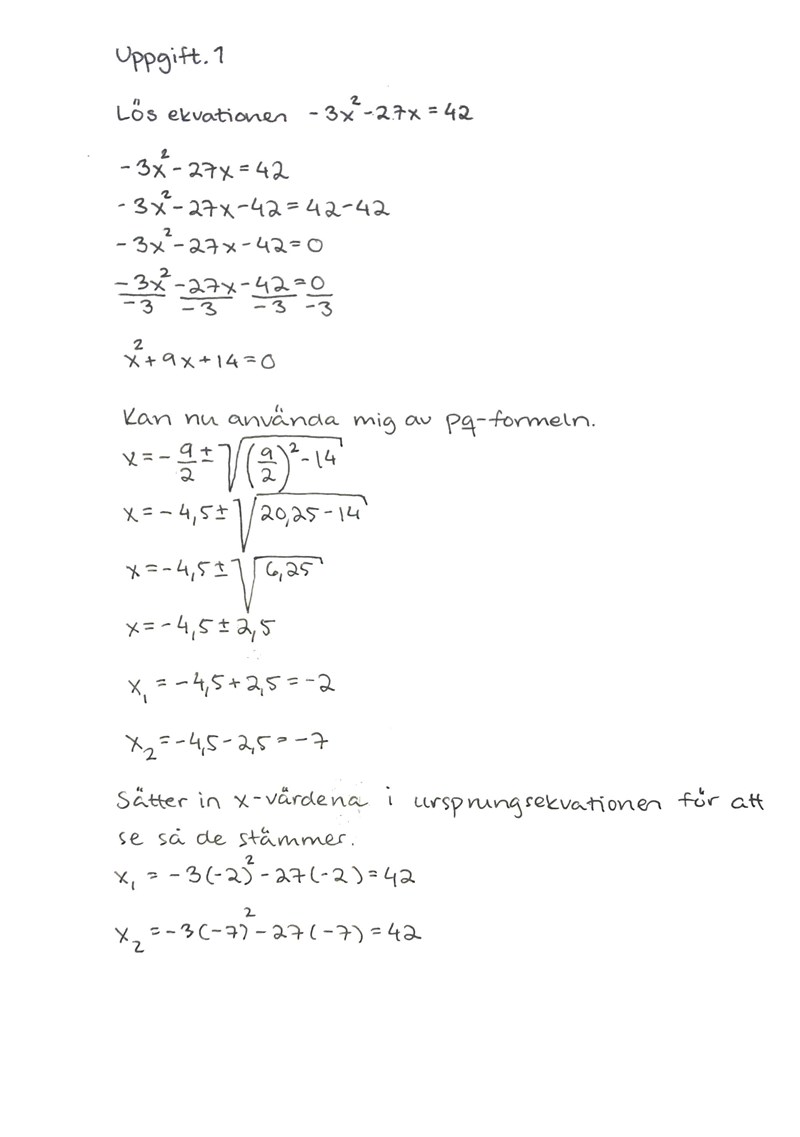 Uppgift. 1
Lös ekvationen -3x²-27x = 42
-3x² - 27x = 42
-3x² - 27x - 42 = 42 - 42
-3x² - 27x - 42 = 0
-3x²/-3 -27x/-3 -42/-3 = 0/-3
x² + 9x + 14 = 0
Kan nu använda mig av pq-formeln.
x = - 9/2 ± √((9/2)² - 14)
x = - 4,5 ± √(20,25 - 14)
x = - 4,5 ± √(6,25)
x = - 4,5 ± 2,5
x₁ = - 4,5 + 2,5 = -2
x₂ = - 4,5 - 2,5 = -7
Sätter in x-värdena i ursprungsekvationen för att
se så de stämmer.
x₁ = -3(-2)² - 27(-2) = 42
x₂ = -3(-7)² - 27(-7) = 42